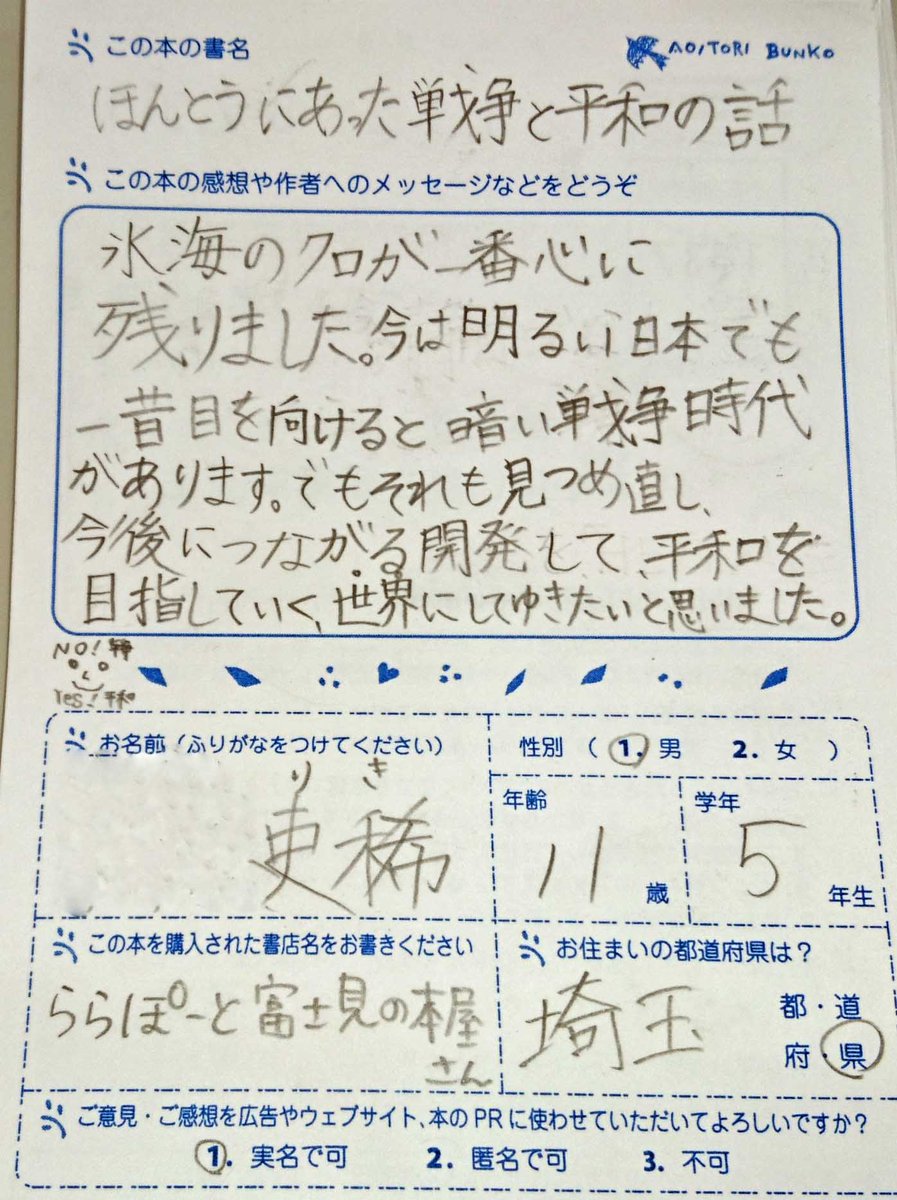 この本の書名
AOITORI BUNKO
ほんとうにあった戦争と平和の話
この本の感想や作者へのメッセージなどをどうぞ
氷海のクロが一番心に
残りました。今は明るい日本でも
一昔目を向けると暗い戦争時代
があります。でもそれも見つめ直し、
今後につながる開発して、平和を
目指していく、世界にしてゆきたいと思いました。
NO!
Yes!平和
お名前(ふりがなをつけてください)
性別 ( 1. 男 2. 女 )
りき
吏稀
年齢
11歳
学年
5年生
この本を購入された書店名をお書きください
ららぽーと富士見の本屋
さん
お住まいの都道府県は?
埼玉
都・道
府・県
ご意見・ご感想を広告やウェブサイト、本のPRに使わせていただいてよろしいですか?
1. 実名で可 2. 匿名で可 3. 不可